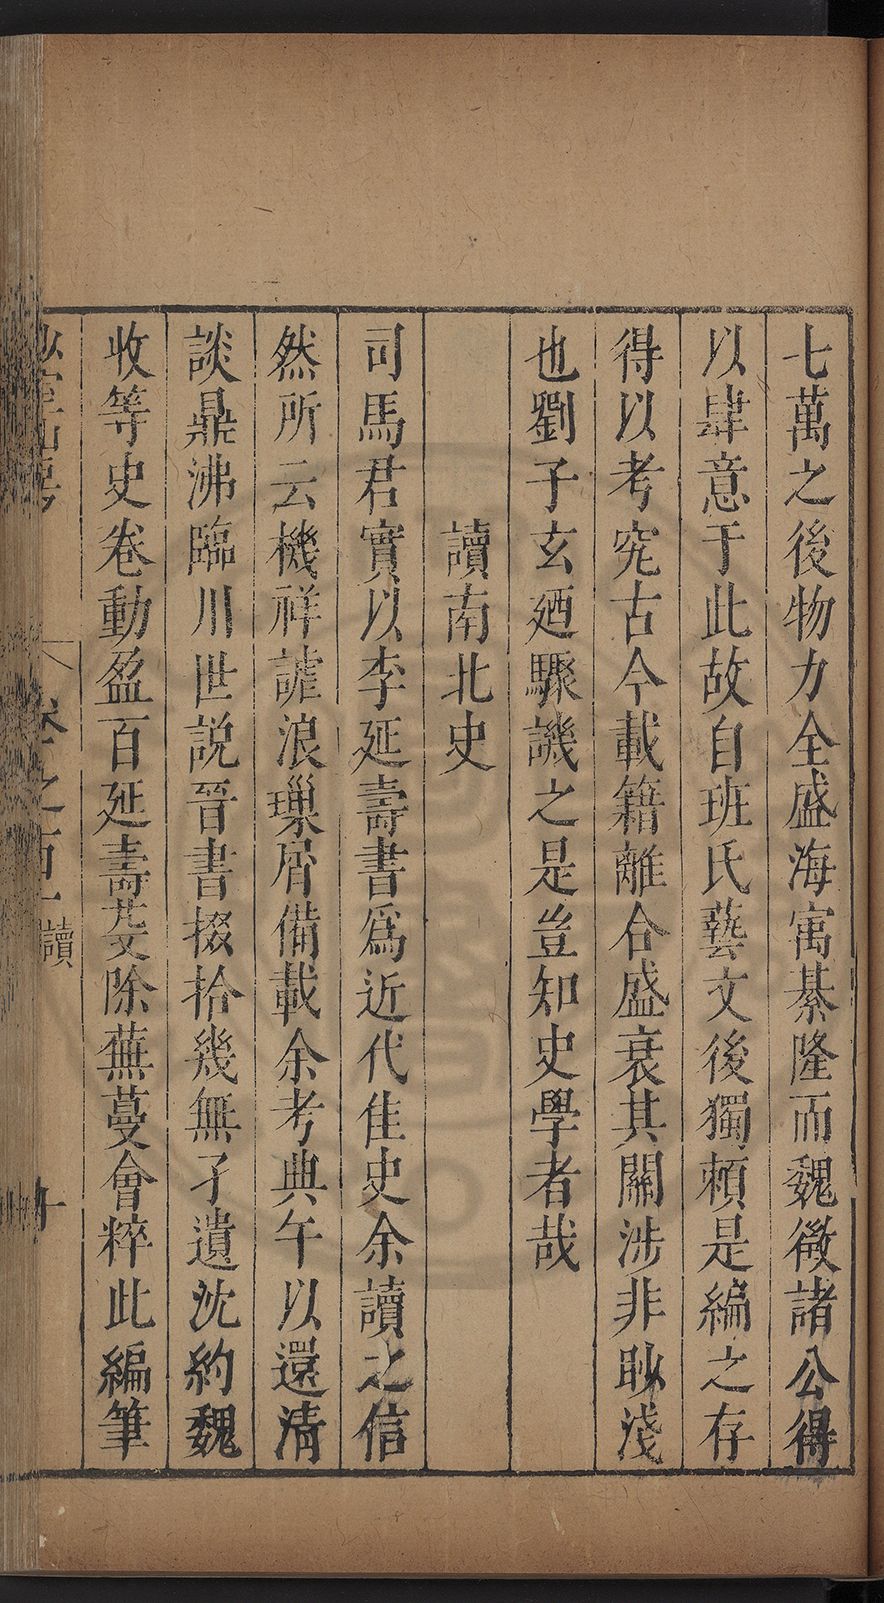 七萬之後物力全盛海寓綦隆而魏徵諸公得
以肆意于此故自班氏藝文後獨賴是編之存
得以考究古今載籍離合盛衰其關涉非眇淺
也劉子玄廼驟譏之是豈知史學者哉
讀南北史
司馬君實以李延壽書爲近代佳史余讀之信
然所云機祥謔浪璅屑備載余考典午以還清
談鼎沸臨川世説晉書掇拾幾無孑遺沈約魏
收等史卷動盈百延壽芟除蕪蔓會粹此編筆
卷之百一 讀 十